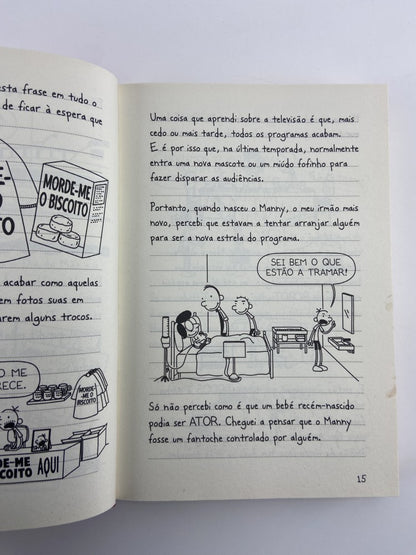 esta frase em tudo o
de ficar à espera que
MORDE-ME
O BISCOITO
acabar como aquelas
em fotos suas em
arem alguns trocos.
O ME
RECE.
MORDE-ME
O BISCOITO
AQUI
Uma coisa que aprendi sobre a televisão é que, mais
cedo ou mais tarde, todos os programas acabam.
E é por isso que, na última temporada, normalmente
entra uma nova mascote ou um miúdo fofinho para
fazer disparar as audiências.
Portanto, quando nasceu o Manny, o meu irmão mais
novo, percebi que estavam a tentar arranjar alguém
para ser a nova estrela do programa.
SEI BEM O QUE
ESTÃO A TRAMAR!
Só não percebi como é que um bebé recém-nascido
podia ser ATOR. Cheguei a pensar que o Manny
fosse um fantoche controlado por alguém.
15